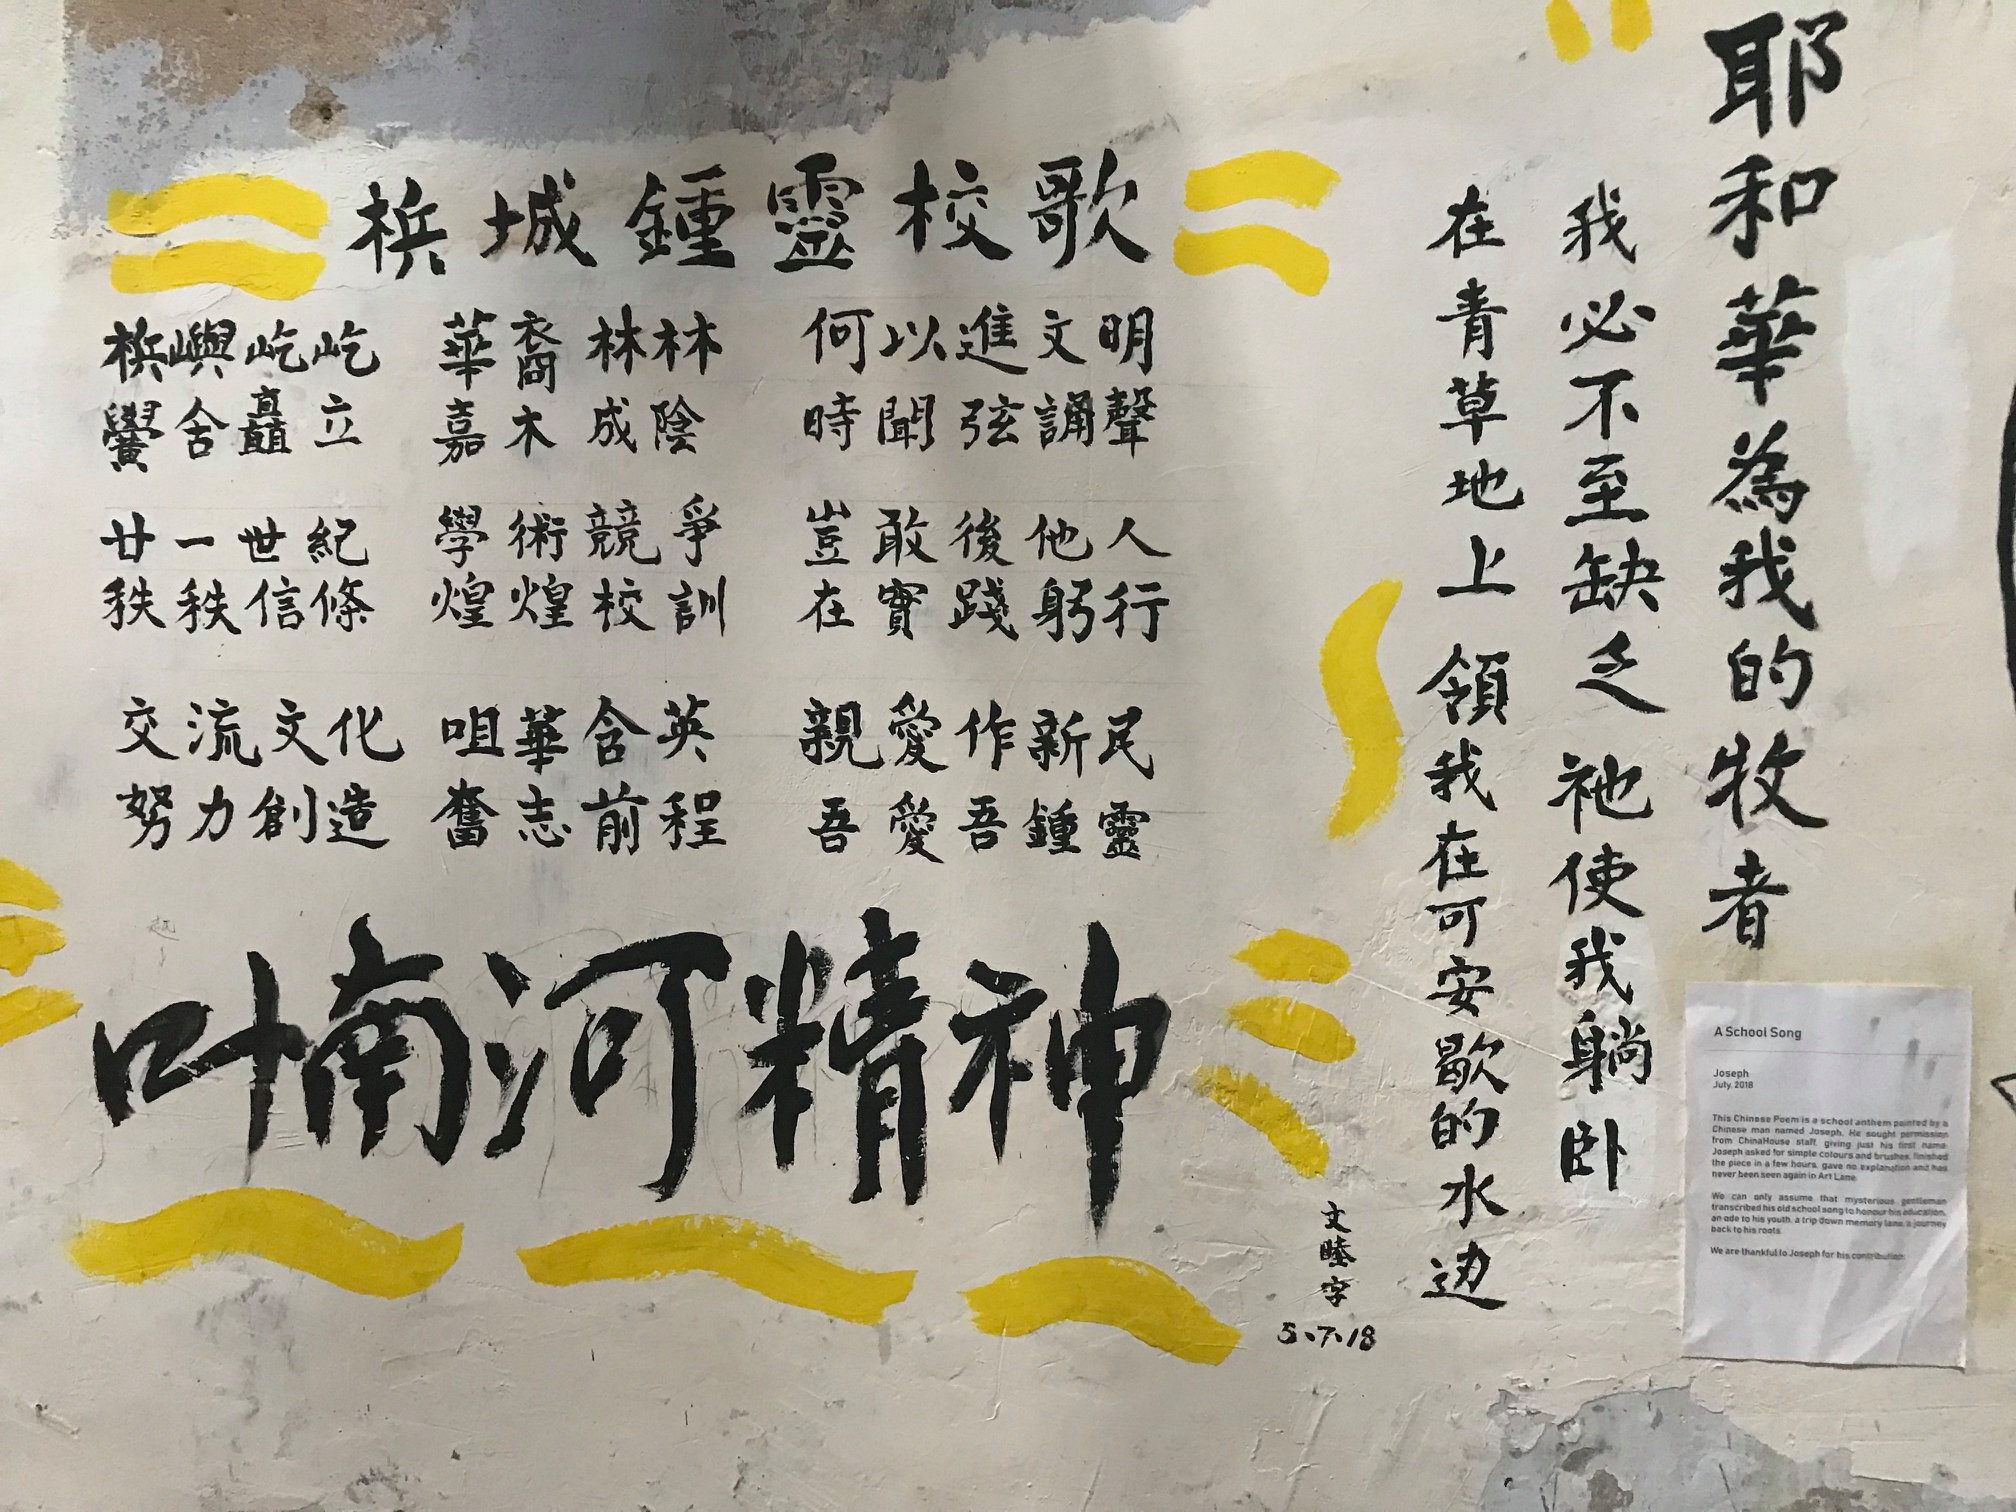 槟城鍾靈校歌
槟嶼屹屹 華裔林林 何以進文明
黌舍矗立 嘉木成陰 時聞弦誦聲
廿一世紀 學術競爭 豈敢後他人
秩秩信條 煌煌校訓 在實踐躬行
交流文化 咀華含英 親愛作新民
努力創造 奮志前程 吾愛吾鍾靈
叶喃河精神
耶和華為我的牧者
我必不至缺乏 祂使我躺卧
在青草地上 領我在可安歇的水边
文睦字
5.7.18
A School Song
Joseph
July, 2018
This Chinese Poem is a school anthem painted by a
Chinese man named Joseph. He sought permission
from ChinaHouse staff, giving just his first name.
Joseph asked for simple colours and brushes, finished
the piece in a few hours, gave no explanation and has
never been seen again in Art Lane.
We can only assume that mysterious gentleman
transcribed his old school song to honour his education,
an ode to his youth, a trip down memory lane, a journey
back to his roots.
We are thankful to Joseph for his contribution.